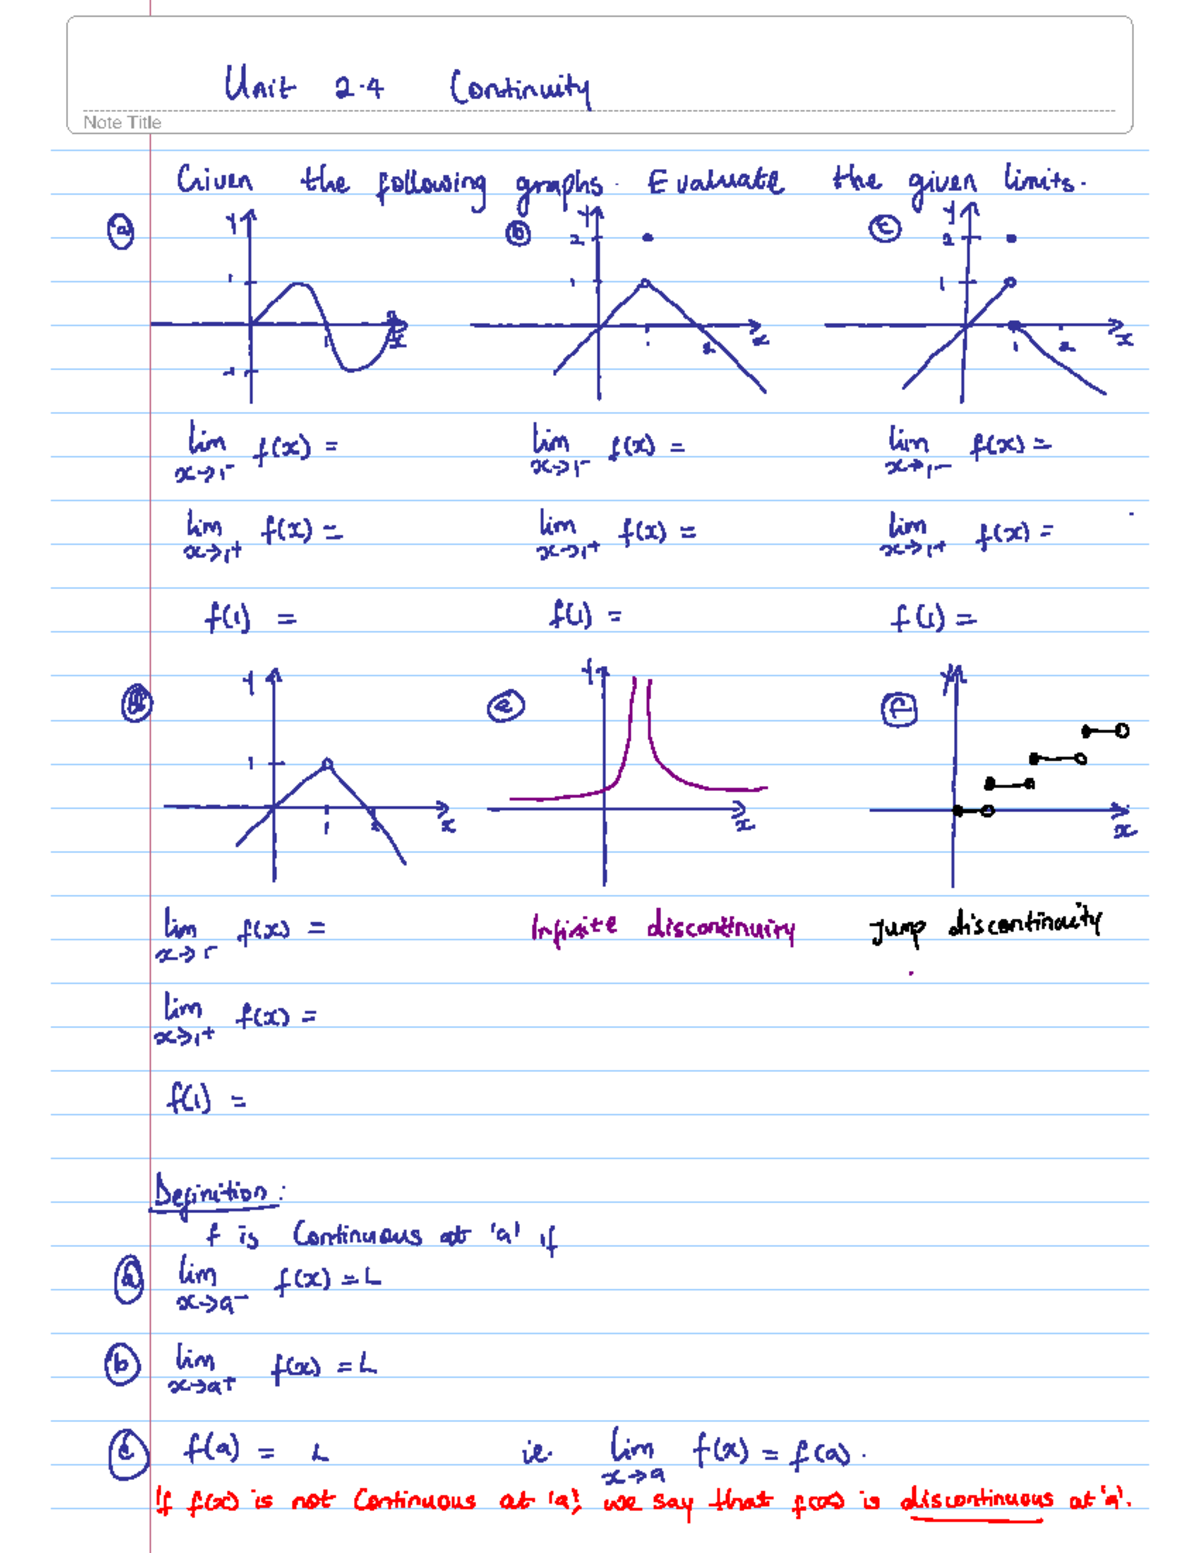 Unit 2.4 Continuity
Note Title
Given the following graphs. Evaluate the given limits.
a y 1 -1 1 2 x
b y 2 1 1 2 x
c y 2 1 1 2 x
lim x→1⁻ f(x) = lim x→1⁻ f(x) = lim x→1⁻ f(x) =
lim x→1⁺ f(x) = lim x→1⁺ f(x) = lim x→1⁺ f(x) =
f(1) = f(1) = f(1) =
y 1 1 2 x
e y x
f y x
lim x→1⁻ f(x) = Infinite discontinuity Jump discontinuity
lim x→1⁺ f(x) =
f(1) =
Definition:
f is Continuous at 'a' if
a lim x→a⁻ f(x) = L
b lim x→a⁺ f(x) = L
c f(a) = L ie. lim x→a f(x) = f(a).
If f(x) is not Continuous at 'a', we say that f(x) is discontinuous at 'a'.